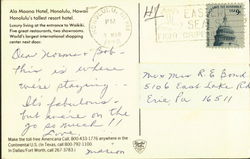 Ala Moana Hotel, Honolulu, Hawaii
Honolulu's tallest resort hotel.
Luxury living at the entrance to Waikiki.
Five great restaurants, two showrooms.
World's largest international shopping
center next door.
HONOLULU,
PM
Dear Norma & Bob -
this is where
we're staying -
It's fabulous,
but we're on the
go so much
Love,
Marion
Mr & Mrs R E Bond
5106 East Lake
Erie, Pa 16511
Make the toll free Americana Call, 800-433-1776 anywhere in the
Continental U.S. (In Texas, call 800-792-1100.
In Dallas/Fort Worth, call 267-3783.)